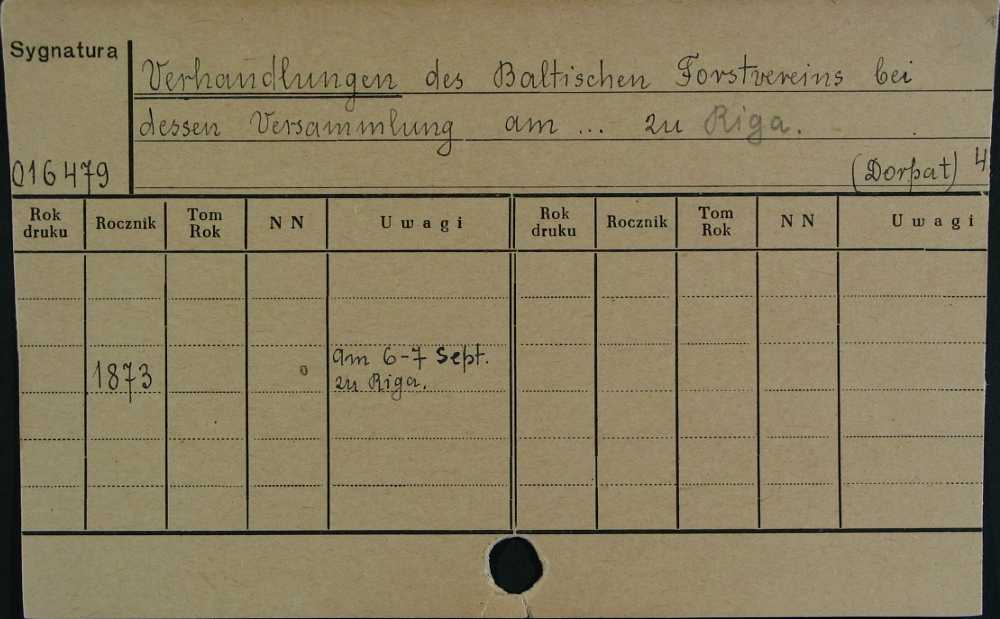 Sygnatura
Verhandlungen des Baltischen Forstvereins bei
dessen Versammlung am ... zu Riga.
016479
(Dorpat) 4
Rok druku Rocznik Tom Rok N N Uwagi Rok druku Rocznik Tom Rok N N Uwagi
am 6-7 Sept.
1873 zu Riga.